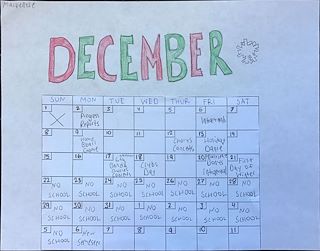 DECEMBER
SUN MON TUE WED THUR FRI SAT
1 2 3 4 5 6 7
Progress
Reports
8 9 10 11 12 13 14
Home
Game
Concerts
Holiday
Dance
15 16 17 18 19 20 21
Band
Concerts
Clubs
Day
First
Day of
Winter
22 23 24 25 26 27 28
NO SCHOOL NO SCHOOL NO SCHOOL NO SCHOOL NO SCHOOL NO SCHOOL NO SCHOOL
29 30 31 1 2 3 4
NO SCHOOL NO SCHOOL NO SCHOOL NO SCHOOL NO SCHOOL NO SCHOOL NO SCHOOL
5 6 7 8 9 10 11
NO SCHOOL
New
Semester